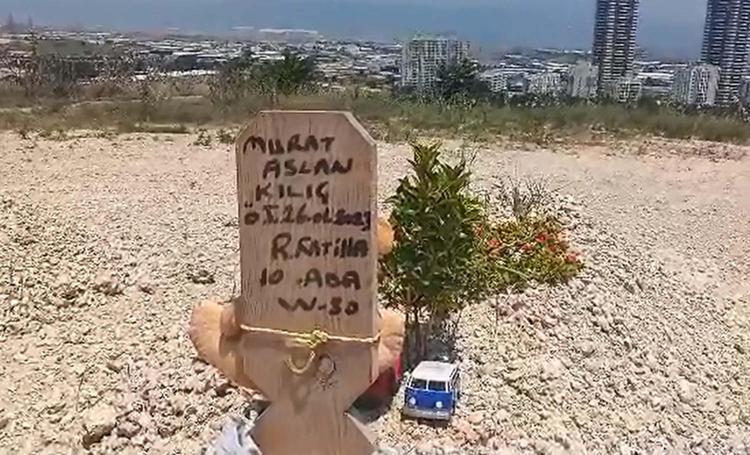 MURAT
ASLAN
KILIÇ
Ö.T. 26.01.2023
R. FATİHA
10 ADA
W-50